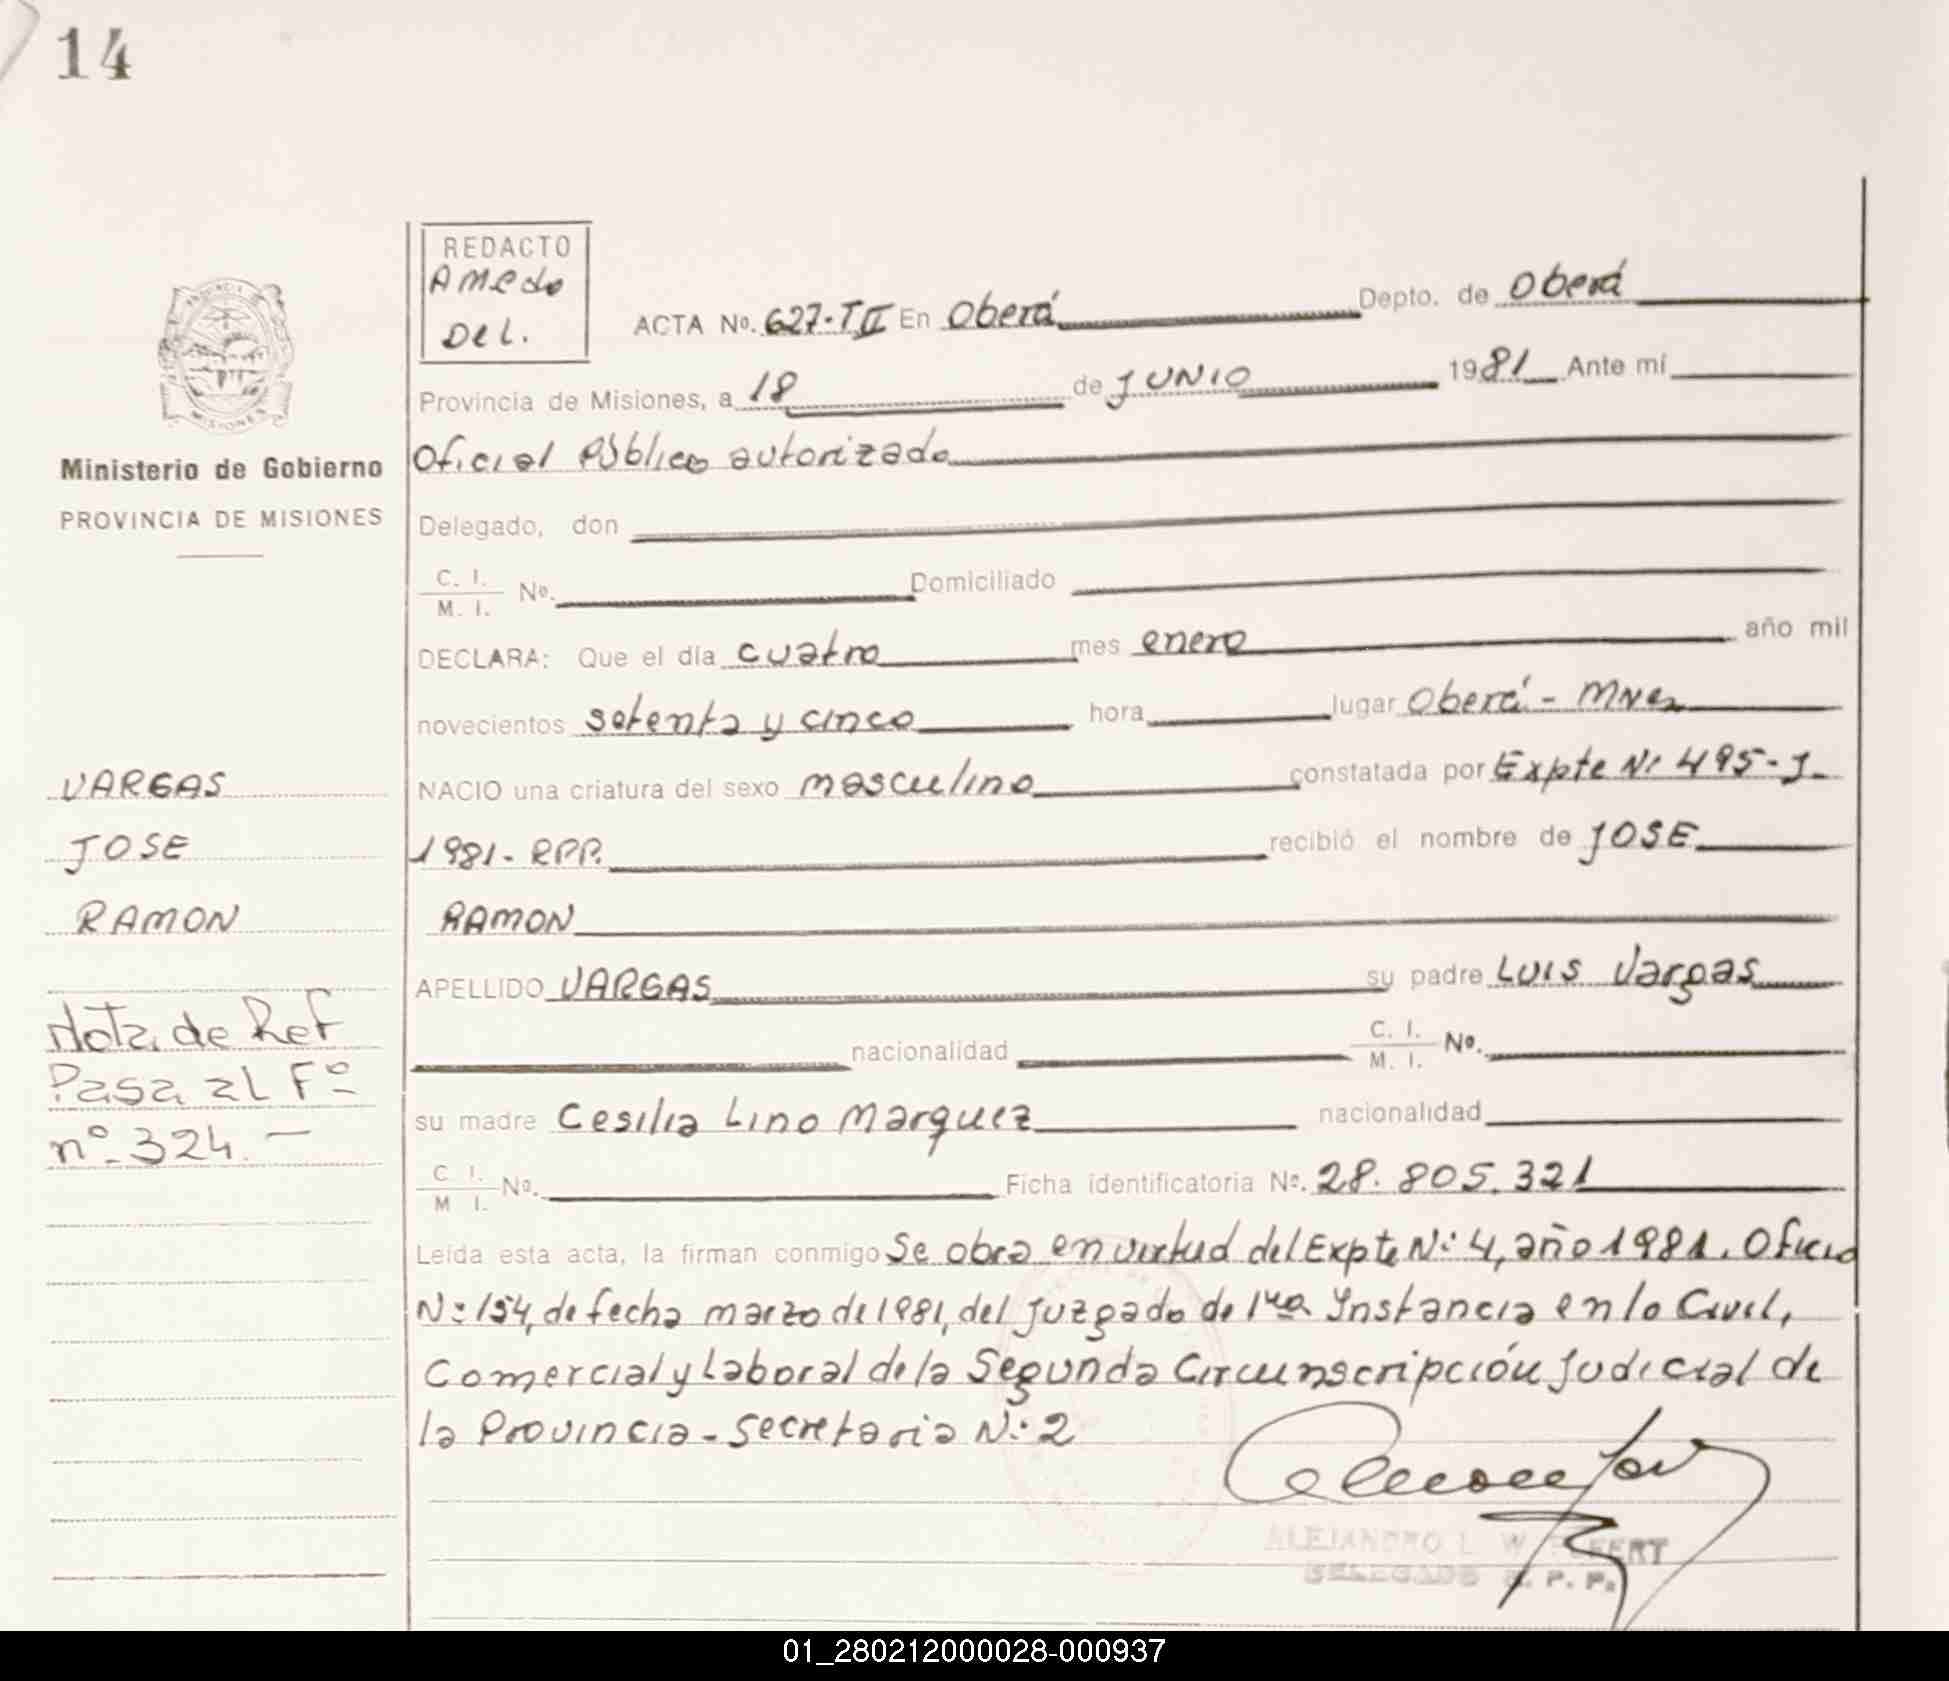 14
REDACTO
Amedo
Del.
ACTA No. 627-TII En Oberá Depto. de Oberá
Provincia de Misiones, a 18 de JUNIO 1981 Ante mí
Oficial Público autorizado
Delegado, don
C. I.
M. I. No. Domiciliado
DECLARA: Que el día cuatro mes enero año mil
novecientos setenta y cinco hora lugar Oberá - Mnes
NACIO una criatura del sexo masculino constatada por Expte Nº 495-J-
1981- RPP. recibió el nombre de JOSE
RAMON
APELLIDO VARGAS su padre LUIS Vargas
nacionalidad C. I.
M. I. No.
su madre Cesilia Lino Marquez nacionalidad
C. I.
M. I. No. Ficha identificatoria No. 28.805.321
Leída esta acta, la firman conmigo Se obra en virtud del Expte Nº 4, año 1981. Oficio
Nº 154, de fecha marzo de 1981, del Juzgado de 1ra Instancia en lo Civil,
Comercial y Laboral de la Segunda Circunscripción Judicial de
la Provincia - Secretaria Nº 2
ALEJANDRO L. W.
DELEGADO R. P. P.
PROVINCIA DE
MISIONES
Ministerio de Gobierno
PROVINCIA DE MISIONES
VARGAS
JOSE
RAMON
Nota de Ref
Pasa al Fº
nº 324. -
01_280212000028-000937